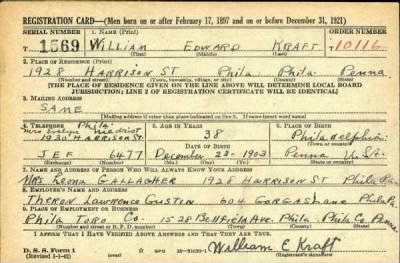 REGISTRATION CARD—(Men born on or after February 17, 1897 and on or before December 31, 1921)
SERIAL NUMBER 1. NAME (Print) ORDER NUMBER
T 1569 William Edward Kraft T 10116
(First) (Middle) (Last)
2. PLACE OF RESIDENCE (Print)
1928 HARRISON ST Phila Phila Penna
(Number and street) (Town, township, village, or city) (County) (State)
[THE PLACE OF RESIDENCE GIVEN ON THE LINE ABOVE WILL DETERMINE LOCAL BOARD
JURISDICTION; LINE 2 OF REGISTRATION CERTIFICATE WILL BE IDENTICAL]
3. MAILING ADDRESS
SAME
[Mailing address if other than place indicated on line 2. If same insert word same]
4. TELEPHONE Phila 5. AGE IN YEARS 6. PLACE OF BIRTH
Mrs Evelyn
HARRISON ST 38 Philadelphia
DATE OF BIRTH
JEF 6477 December 23- 1903 Penna U.S.
7. NAME AND ADDRESS OF PERSON WHO WILL ALWAYS KNOW YOUR ADDRESS
Mrs Leona GALLAGHER 1928 HARRISON ST Phila Pa
8. EMPLOYER'S NAME AND ADDRESS
Theron Lawrence Gustin 604 Gorgas Lane Phila Pa
9. PLACE OF EMPLOYMENT OR BUSINESS
Phila Toro Co. 1528 Belfield Ave. Phila Phila Co. Penna
(Number and street or R. F. D. number) (Town) (County) (State)
I AFFIRM THAT I HAVE VERIFIED ABOVE ANSWERS AND THAT THEY ARE TRUE.
D. S. S. Form 1
(Revised 1-1-42) (over) William E Kraft
(Registrant's signature)